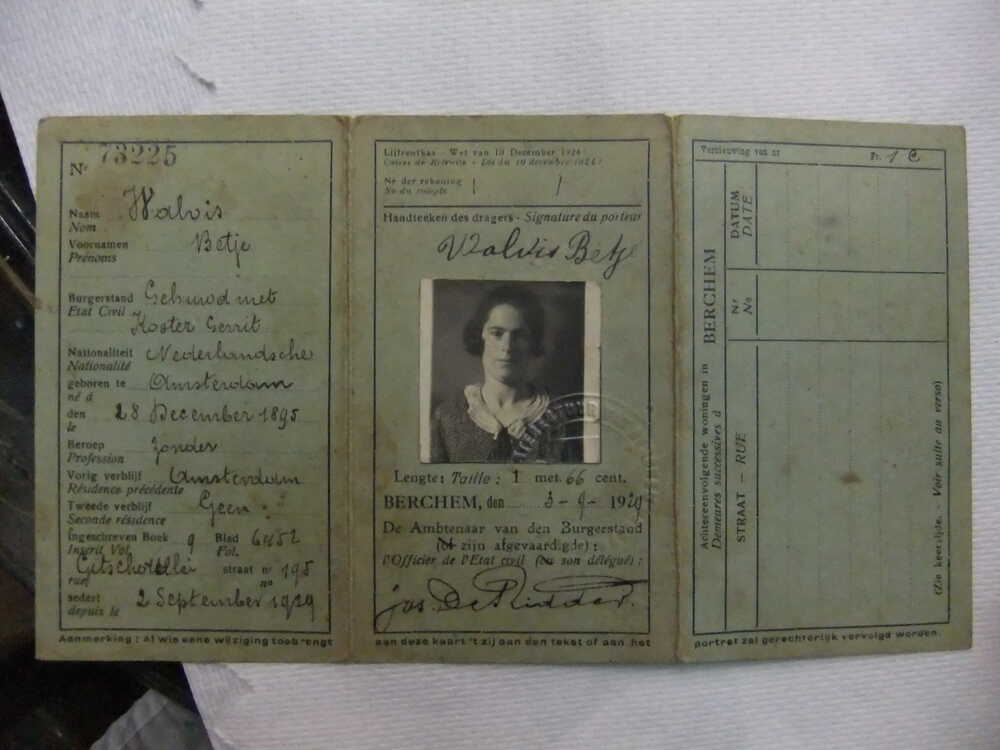 Nr 73225
Naam Walvis
Nom
Voornamen Betje
Prénoms
Burgerstand Gehuwd met
Etat Civil Koster Gerrit
Nationaliteit Nederlandsche
Nationalité
geboren te Amsterdam
né à
den 28 December 1895
le
Beroep Zonder
Profession
Vorig verblijf Amsterdam
Résidence précédente
Tweede verblijf Geen
Seconde résidence
Ingeschreven Boek 9 Blad 6452
Inscrit Vol. Fol.
straat nr 195
rue no
sedert 2 September 1929
depuis le
Aanmerking : Al wie eene wijziging toebrengt
Lijfrentkas - Wet van 10 December 1924
Caisse de Retraite - Loi du 10 decembre 1924
Nr der rekening
No du compte
Handteeken des dragers - Signature du porteur
Walvis Betje
Lengte: Taille: 1 met. 66 cent.
BERCHEM, den 3-9-1929
De Ambtenaar van den Burgerstand
(of zijn afgevaardigde) :
l'Officier de l'Etat civil (ou son délégué) :
Jos. De Ridder.
aan deze kaart 't zij aan den tekst of aan het
Vernieuwing van nr Fr. 1
Achtereenvolgende woningen in BERCHEM
Demeures successives à
STRAAT — RUE
Nr
No
DATUM
DATE
(Zie keerzijde. - Voir suite au verso)
portret zal gerechterlijk vervolgd worden.